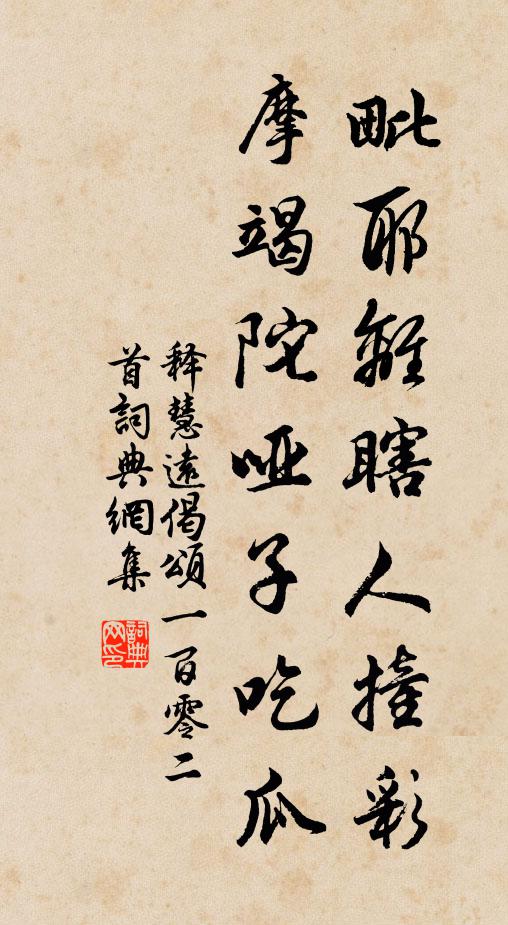 毗耶離瞎人撞彩
摩竭陀哑子吃瓜
释慧遠偈頌一百零二
首詞典網集
詞典網印